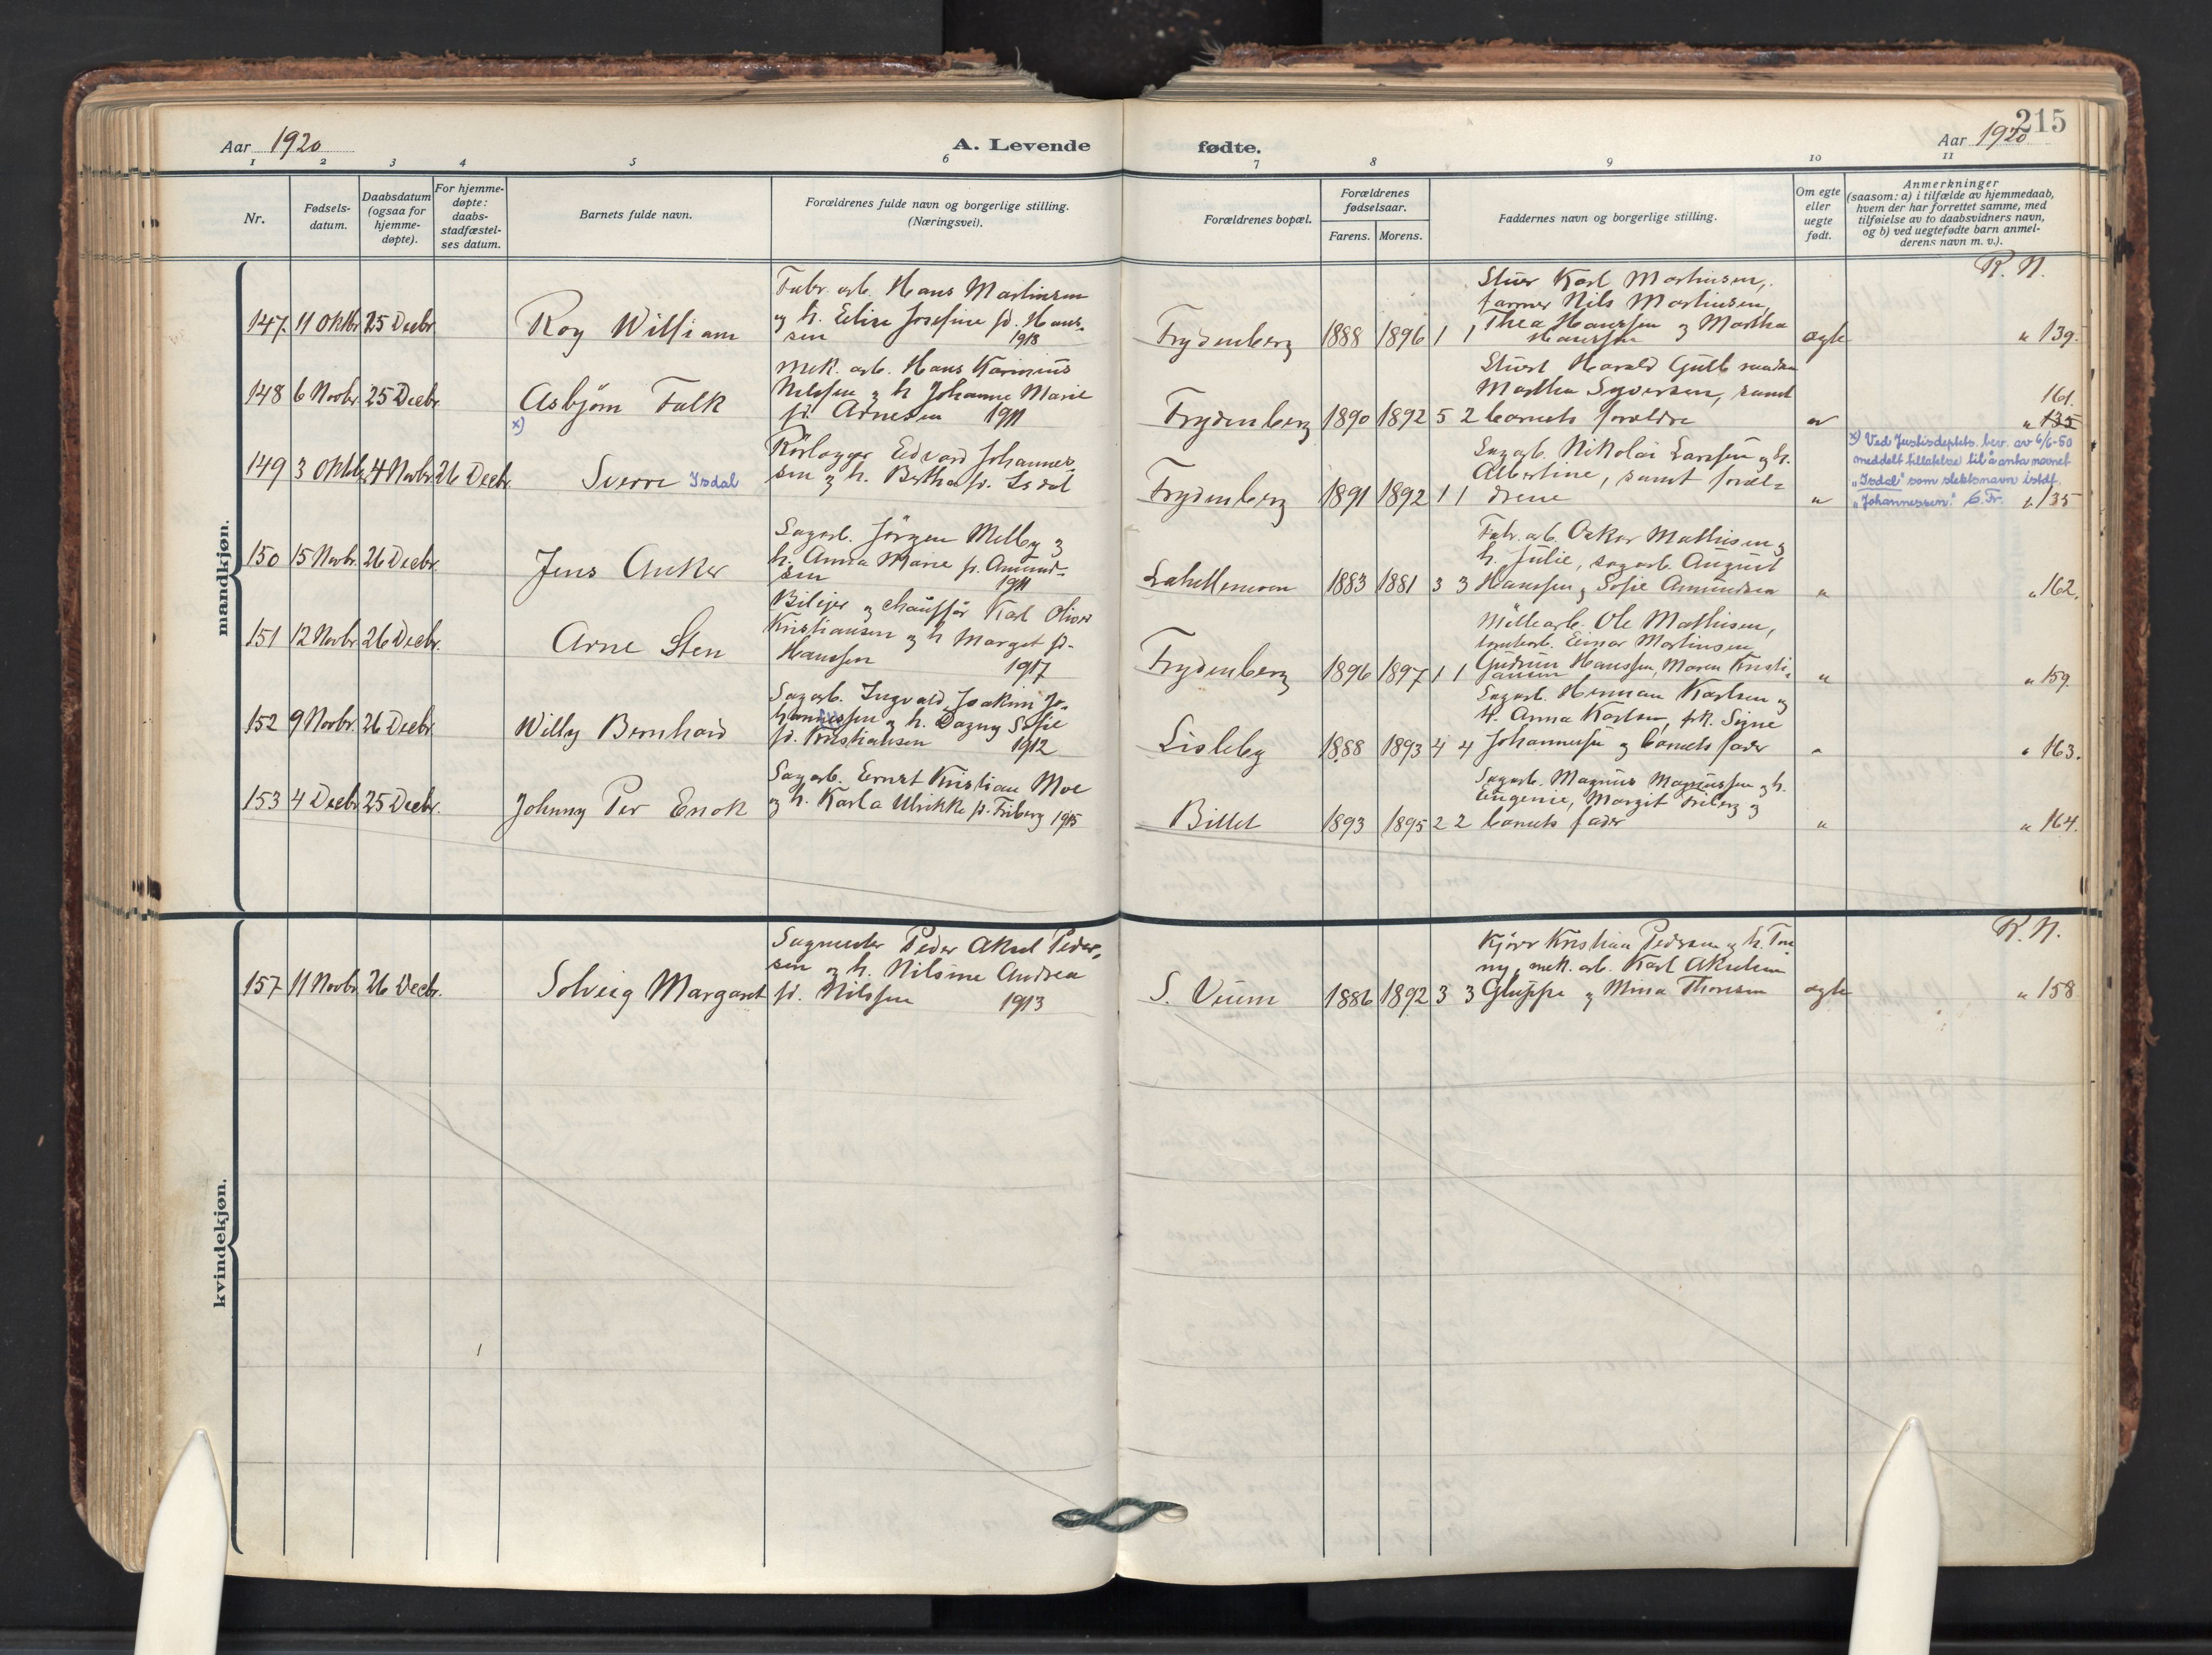 Aar 1920
A. Levende
fødte.
Aar 1920
215
1 2 3 4 5 6 7 8 9 10 11
Nr.
Fødsels-
datum.
Daabsdatum
(ogsaa for
hjemme-
døpte).
For hjemme-
døpte:
daabs-
stadfæstel-
ses datum.
Barnets fulde navn.
Forældrenes fulde navn og borgerlige stilling.
(Næringsvei).
Forældrenes bopæl.
Forældrenes
fødselsaar.
Farens. Morens.
Faddernes navn og borgerlige stilling.
Om egte
eller
uegte
født.
Anmerkninger
(saasom: a) i tilfælde av hjemmedaab,
hvem der har forrettet samme, med
tilføielse av to daabsvidners navn,
og b) ved uegtefødte barn anmel-
derens navn m. v.).
mandkjøn.
K. N.
147. 11 Oktbr 25 Decbr
Roy William
Fabr. arb. Hans Martinsen
og h. Eline Josefine f. Hans-
sen 1918
Frydenberg 1888 1896 1 1
Stuer Karl Martinsen,
farmer Nils Martinsen,
Thea Hanssen og Martha
Hanssen
egte
" 139.
148 6 Novbr 25 Decbr.
Asbjørn Falk
x)
Mek. arb. Hans Karinius
Nilssen og h Johanne Marie
fd. Arnesen 1911
Frydenberg 1890 1892 5 2
Stuert Harald
Martha Syversen, samt
barnets forældre
"
161.
" 135
149 3 Oktbr 4 Novbr 26 Decbr.
Sverre Isdal
Rörlægger Edvard Johannes-
sen og h. Bertha fd. Isdal
Frydenberg 1891 1892 1 1
Sagarb. Nikolai Larssen og h.
Albertine, samt foræl-
drene
"
x) Ved Justisdeptets. bev. av 6/6-50
meddelt tillatelse til å anta navnet
"Isdal" som slektsnavn istdf.
"Johannessen." G. Fr. " 135
150 15 Novbr. 26 Decbr.
Jens Anker
Sagarb. Jörgen Melby og
h. Anna Marie f. Amund-
sen 1911
Lahellemoen 1883 1881 3 3
Fabr. arb. Oskar Mathisen og
h. Julie, sagarb. August
Hanssen, og Sofie Amundsen
"
" 162.
151 12 Novbr. 26 Decbr.
Arne Sten
Bileier og chauffør Karl Oliver
Kristiansen og h Margit fd.
Hanssen 1917
Frydenberg 1896 1897 1 1
Möllearb. Ole Mathisen,
Einar Martinsen
Gudrun Hanssen, Maren Kristi-
ansen
"
" 159.
152 9 Novbr. 26 Decbr
Willy Bernhard
Sagarb. Ingvald Joakim Jo-
hannessen og h. Dagny Sofie
fd. Kristiansen 1912
Lisleby 1888 1893 4 4
Sagarb. Herman Karlsen og
h. Anna Karlsen, frk. Signe
Johannessen og barnets fader
"
" 163.
153 4 Decbr 25 Decbr.
Johnny Per Enok
Sagarb. Ernst Kristian Moe
og h. Karla Ulrikke fd. Friberg 1915
Billet 1893 1895 2 2
Sagarb. Magnus Magnussen og h.
Eugenie, Margit Friberg og
barnets fader
"
" 164.
kvindekjøn.
K. N.
157 11 Novbr. 26 Decbr.
Solveig Margaret
Sagmester Peder Aksel Peder-
sen og h. Nilsine Andrea
fd. Nilssen 1913
S. Veum 1886 1892 3 3
Kjører Kristian Pedersen og h.
mek. arb. Karl Akselsen
Gluppe og Mina Thoresen
egte
" 158